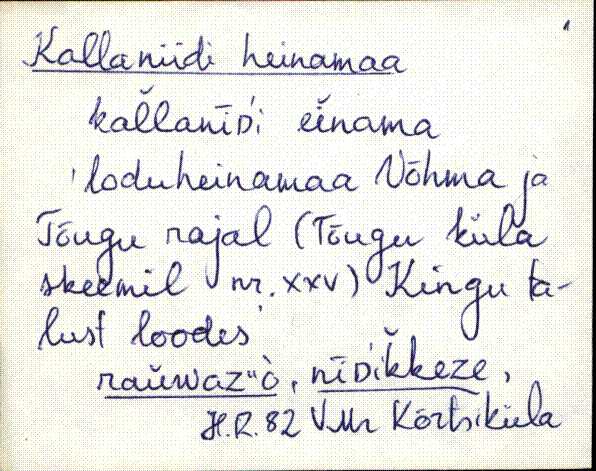 Kallaniidi heinamaa
kal̆lanīDi ei̮nama
'loduheinamaa Võhma ja
Tõugu rajal (Tõugu küla
skeemil nr. XXV) Kingu ta-
lust loodes'
raŭwaz"ò, nīDik̆keze,
H.R. 82 VMr Kõrtsiküla